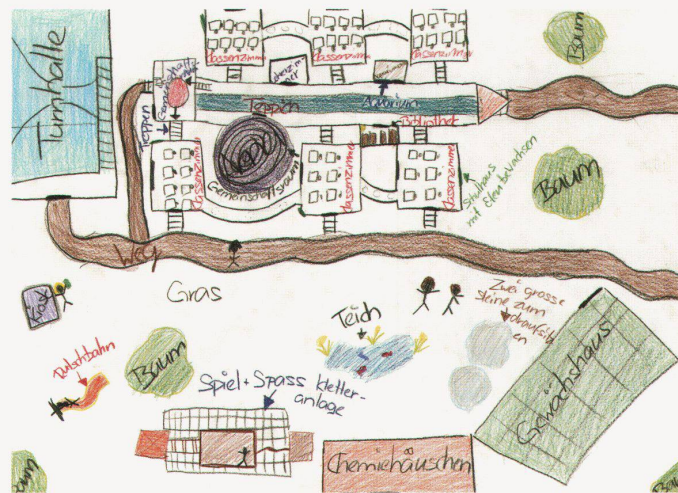 Turnhalle
Klassenzimmer
Klassenzimmer
Klassenzimmer
Baum
Treppen
Aquarium
Teppen
Bibliothek
Klassenzimmer
Gemeinschaftsraum
Klassenzimmer
Klassenzimmer
Schulhaus
mit Efeu bewachsen
Baum
Weg
Kiosk
Gras
Teich
Zwei grosse
steine zum
draufsitz
en
Rutschbahn
Baum
Spiel + Spass kletter-
anlage
Gewächshaus
Chemiehäuschen